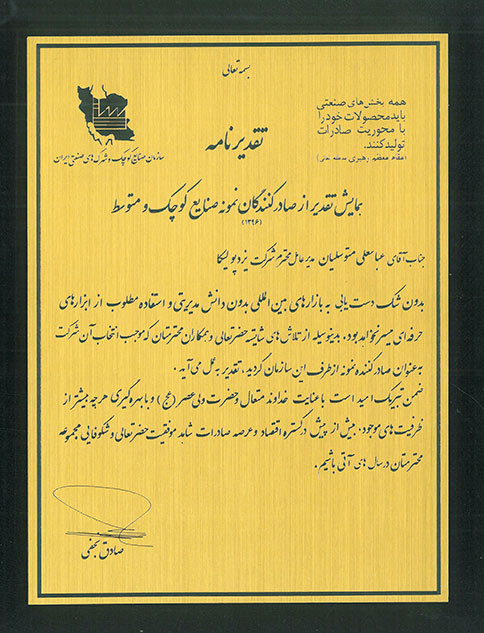 بسمه تعالی
همه بخش‌های صنعتی
باید محصولات خود را
با محوریت صادرات
تولید کنند.
(مقام معظم رهبری مدظله العالی)
سازمان صنایع کوچک و شهرک‌های صنعتی ایران
تقدیرنامه
همایش تقدیر از صادرکنندگان نمونه صنایع کوچک و متوسط
(۱۳۹۶)
جناب آقای عباسعلی متوسلیان مدیرعامل محترم شرکت یزد پولیکا
بدون شک دست یابی به بازارهای بین المللی بدون دانش مدیریتی و استفاده مطلوب از ابزارهای
حرفه ای میسر نخواهد بود، بدینوسیله از تلاش های شایسته حضرتعالی و همکاران محترمتان که موجب انتخاب آن شرکت
به عنوان صادرکننده نمونه از طرف این سازمان گردید، تقدیر به عمل می آید.
ضمن تبریک امید است با عنایت خداوند متعال و حضرت ولی عصر (عج) و با بهره گیری هرچه بیشتر از
ظرفیت های موجود، بیش از پیش در گستره اقتصاد و عرصه صادرات شاهد موفقیت حضرتعالی و شکوفایی مجموعه
محترمتان در سال های آتی باشیم.
صادق نجفی